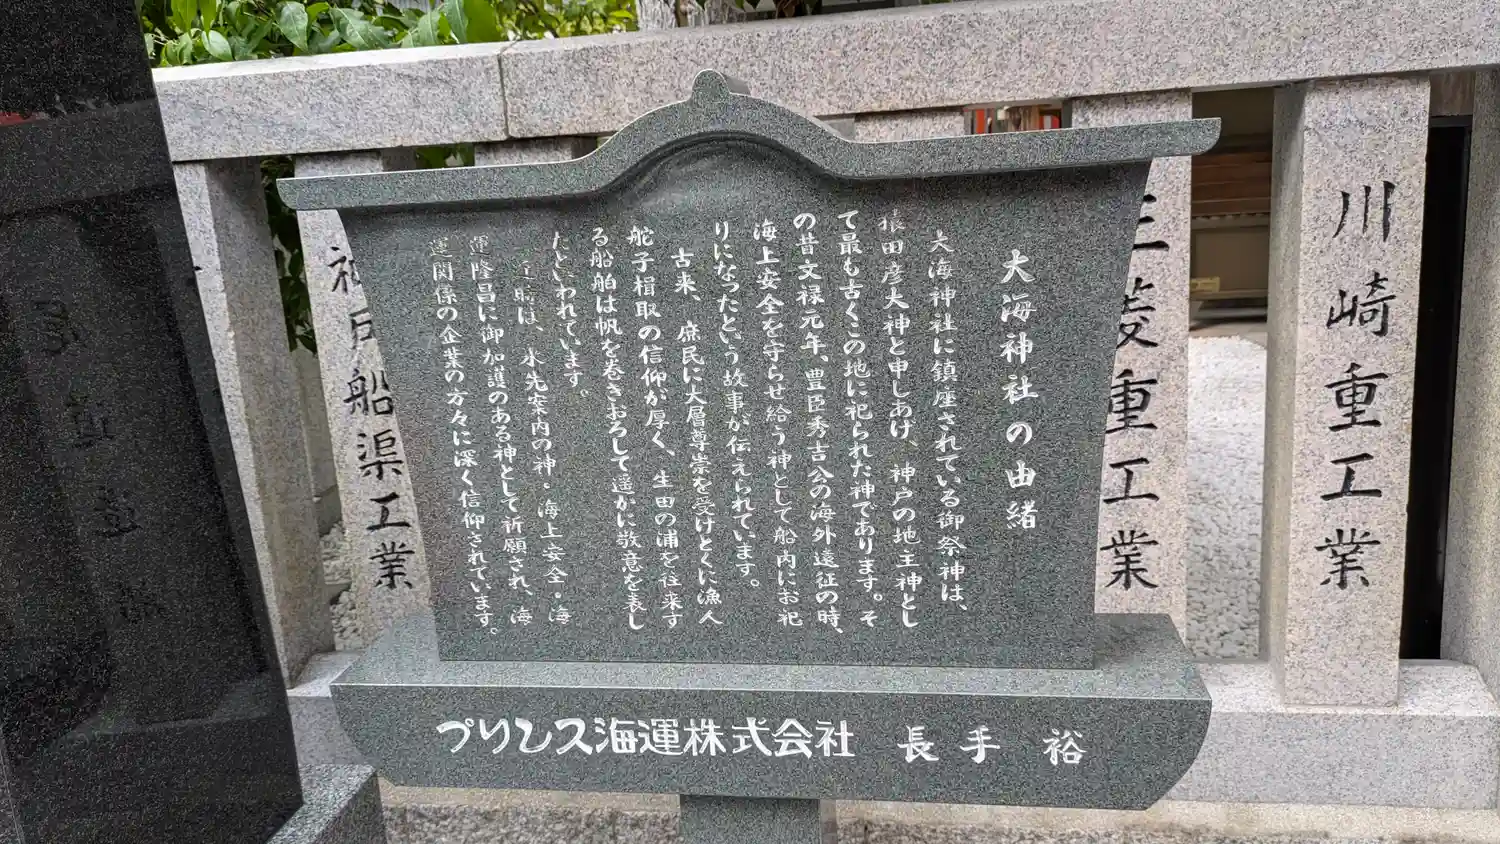 大海神社の由緒
大海神社に鎮座されている御祭神は、
猿田彦大神と申しあげ、神戸の地主神とし
て最も古くこの地に祀られた神であります。そ
の昔文禄元年、豊臣秀吉公の海外遠征の時、
海上安全を守らせ給う神として船内にお祀
りになったという故事が伝えられています。
古来、庶民に大層尊崇を受けとくに漁人
舵子楫取の信仰が厚く、生田の浦を往来す
る船舶は帆を巻きおろして遥かに敬意を表し
たといわれています。
近時は、水先案内の神・海上安全・海
運隆昌に御加護のある神として祈願され、海
運関係の企業の方々に深く信仰されています。
プリンス海運株式会社 長手 裕
川崎重工業
三菱重工業
神戸船渠工業